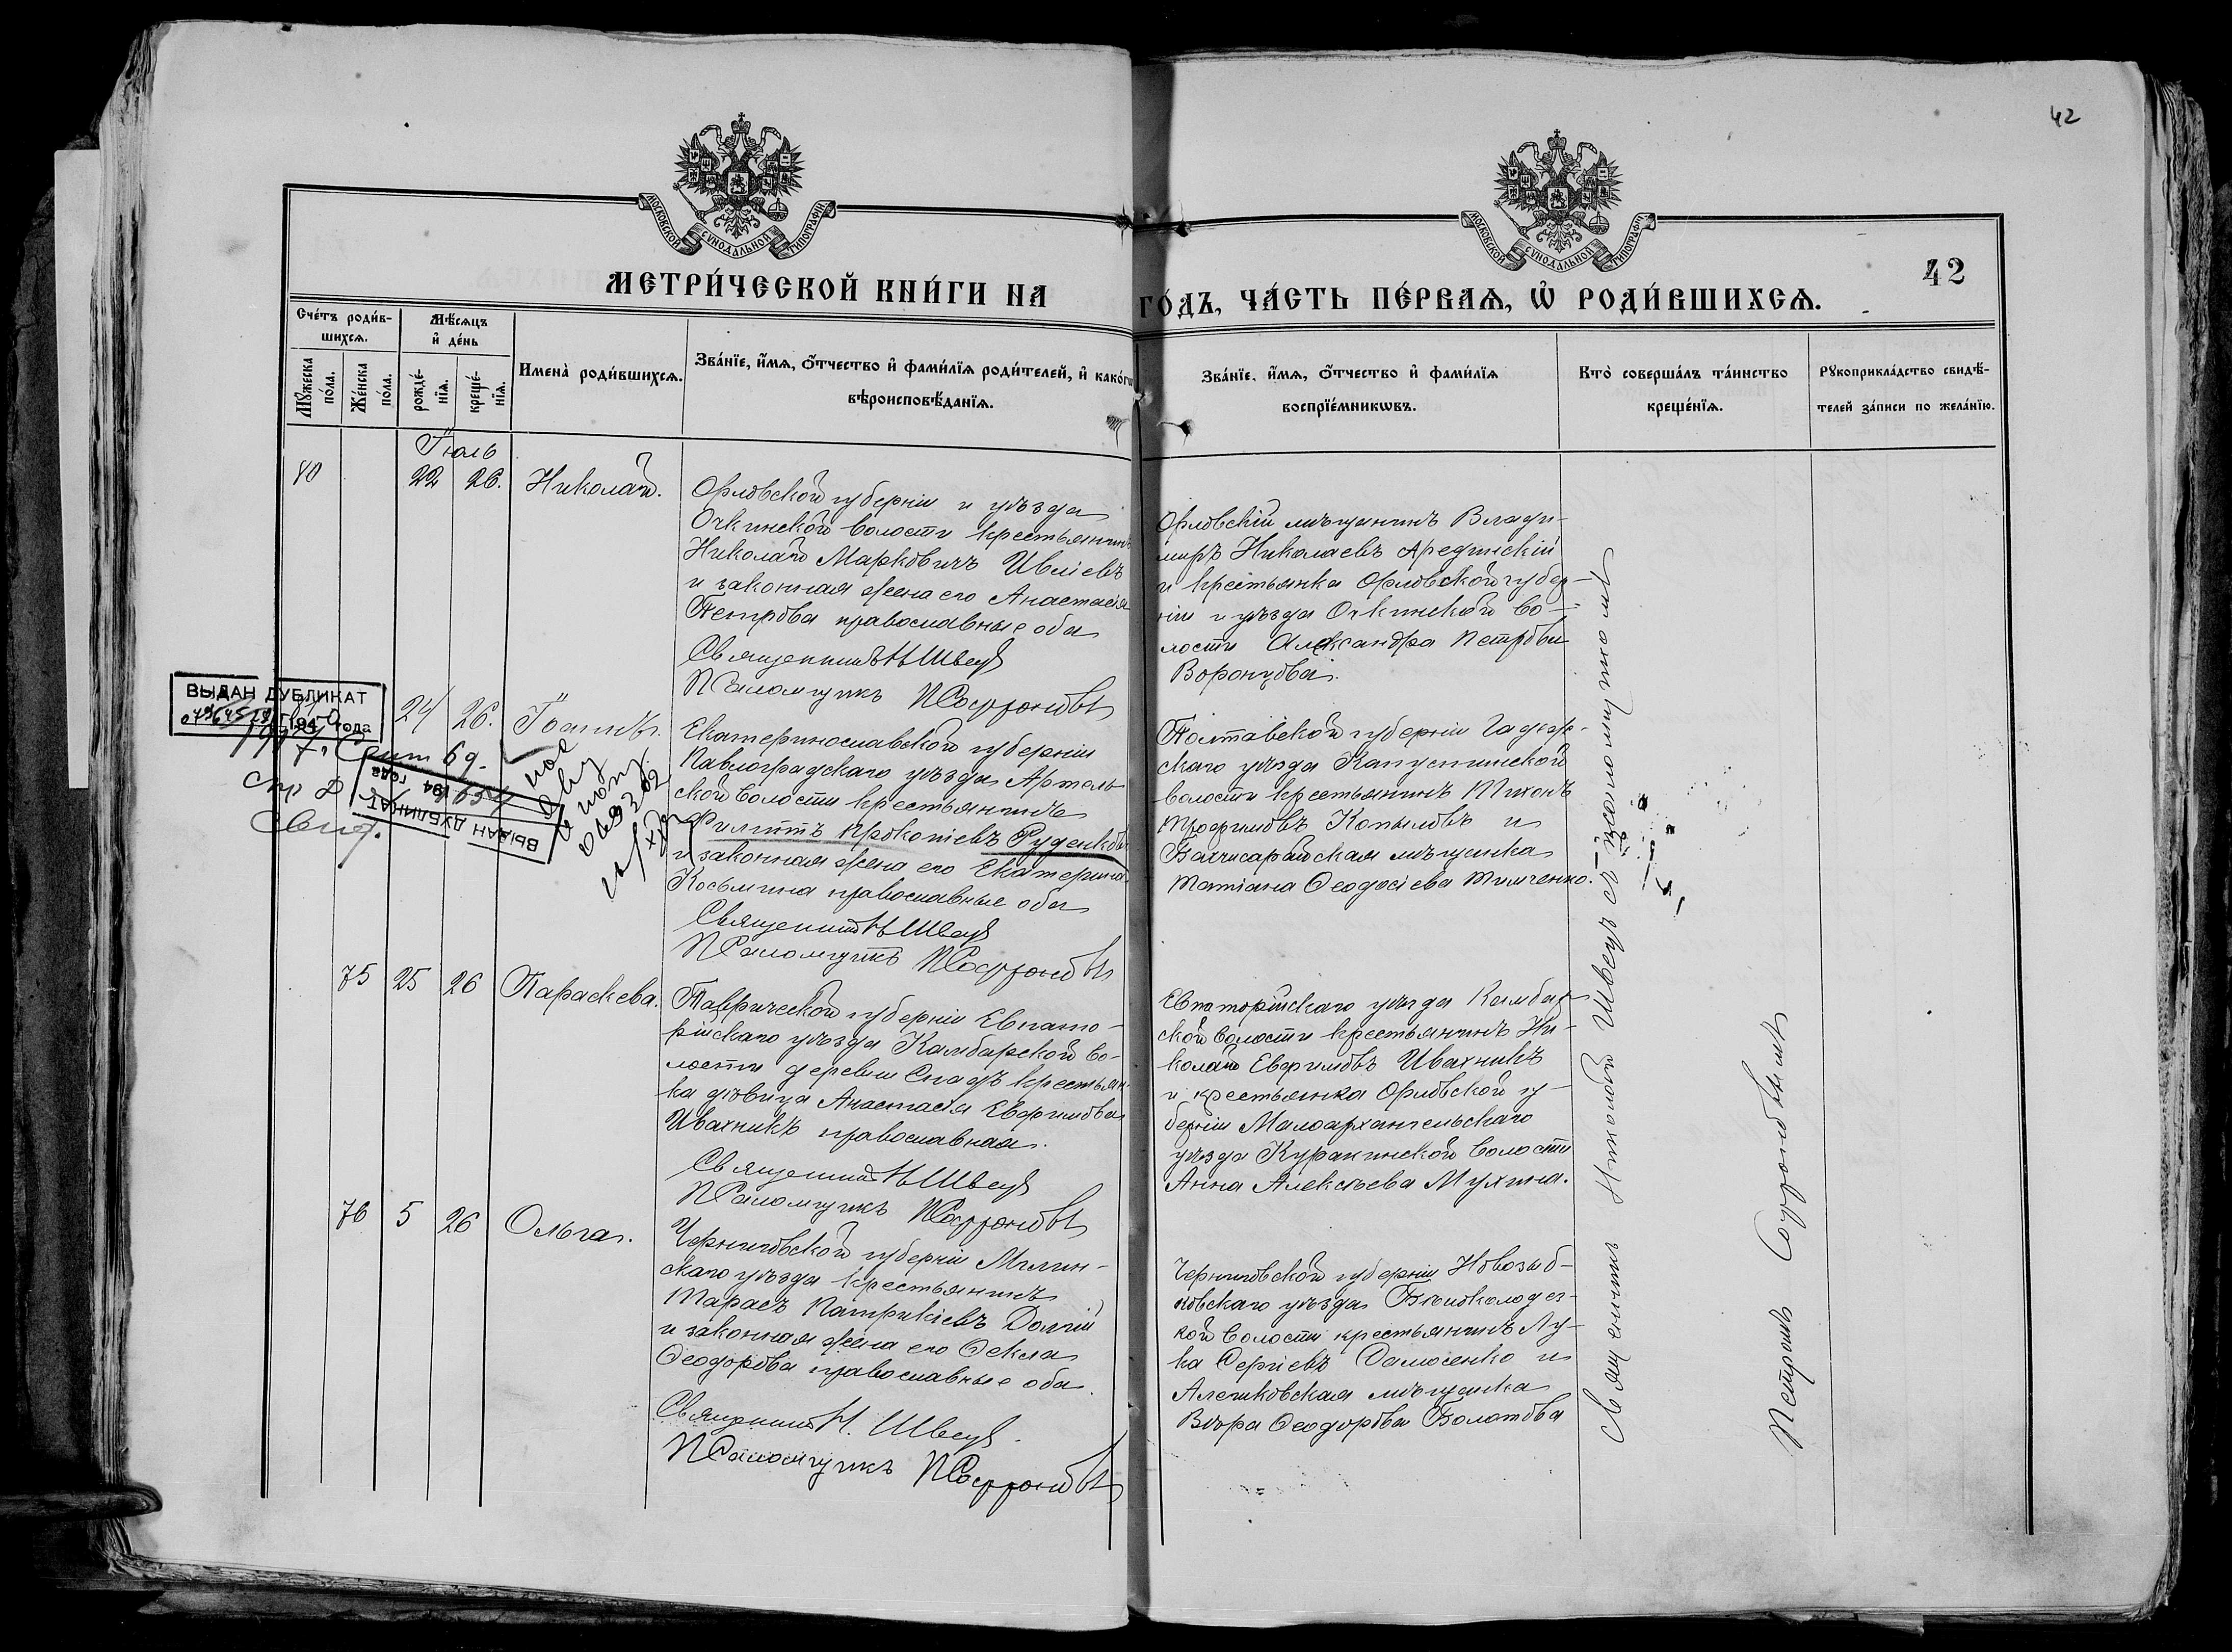 42
МОСКОВСКОЙ СѴНОДАЛЬНОЙ ТИПОГРАФІИ
МОСКОВСКОЙ СѴНОДАЛЬНОЙ ТИПОГРАФІИ
МЕТРИ́ЧЕСКОЙ КНИ́ГИ НА
ГО́ДЪ, ЧА́СТЬ ПЕ́РВАѦ, Ѡ҆ РОДИ́ВШИХСѦ.
42
Сче́тъ роди́в-
шихсѧ.
Мꙋ́жеска по́ла.
Же́нска по́ла.
Мѣ́сѧцъ
и҆ де́нь
рожде́-
нїѧ.
креще́-
нїѧ.
Имена̀ роди́вшихсѧ.
Зва́нїе, и҆́мѧ, ѻ҆́тчество и҆ фами́лїѧ роди́телей, и҆ како́гѡ
вѣроисповѣ́данїѧ.
Зва́нїе, и҆́мѧ, ѻ҆́тчество и҆ фами́лїѧ
воспрїе́мникѡвъ.
Кто̀ соверша́лъ та́инство
креще́нїѧ.
Рꙋкоприкла́дство свидѣ́-
телей за́писи по жела́нїю.
Іюль
80 22 26. Николай.
Орловской губерніи и уѣзда
Очкинской волости крестьянинъ
Николай Марковичъ Ивлiевъ
и законная жена его Анастасія
Петрова православные оба
Священникъ Н Швецъ
Псаломщикъ П Софроновъ
Орловскій мѣщанинъ Влади-
міръ Николаевъ
и крестьянка Орловской губер-
ніи и уѣзда Очкинской во-
лости Александра Петрова
Воронцова.
ВЫДАН ДУБЛИКАТ
194 года
24 26. Іоаннъ.
Екатеринославской губерніи
Павлоградскаго уѣзда Артель-
ской волости крестьянинъ
Филиппъ Прокопіевъ Руденковъ
и законная жена его Екатерина
Косьмина православные оба
Священникъ Н Швецъ
Псаломщикъ П Софроновъ
ВЫДАН ДУБЛИКАТ
194 года
Полтавской губерніи Гадяч-
скаго уѣзда Капустинской
волости крестьянинъ Тихонъ
Трофимовъ Копыловъ и
Бахчисарайская мѣщанка
Татіана Ѳеодосіева Тимченко.
75 25 26 Параскева.
Таврической губерніи Евпато-
рійскаго уѣзда Камбарской во-
лости деревни крестьян-
ка дѣвица Анастасія Евфимова
Ивахникъ православная.
Священникъ Н Швецъ
Псаломщикъ П Софроновъ
Евпаторійскаго уѣзда Камбар-
ской волости крестьянинъ Ни-
колай Евфимовъ Ивахникъ
и крестьянка Орловской гу-
берніи Малоархангельскаго
уѣзда Куракинской волости
Анна Алексѣева Мухина.
76 5 26 Ольга.
Черниговской губерніи Мглин-
скаго уѣзда крестьянинъ
Тарасъ Патрикіевъ Долгій
и законная жена его Ѳекла
Ѳеодорова православные оба.
Священникъ Н. Швецъ.
Псаломщикъ П Софроновъ
Черниговской губерніи Новозыб-
ковскаго уѣзда
кой волости крестьянинъ Лу-
ка Сергіевъ и
Алешковская мѣщанка
Вѣра Ѳеодорова Болотова
Священникъ Николай Швецъ съ псаломщикомъ
Петромъ Софроновымъ